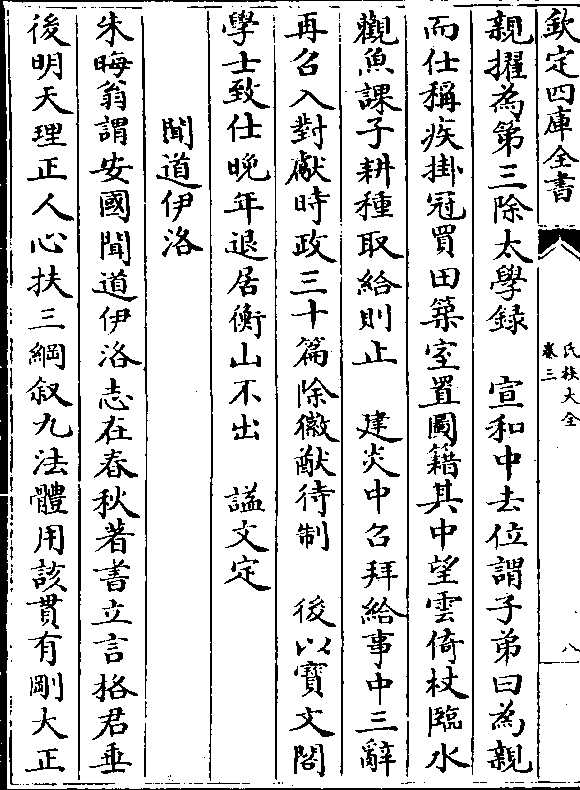 欽定四庫全書
氏族大全
卷三
八
親擢為第三除太學錄　宣和中去位謂子弟曰為親
而仕稱疾掛冠買田築室置圖籍其中望雲倚杖臨水
觀魚課子耕種取給則止　建炎中召拜給事中三辭
再召入對獻時政三十篇除徽猷待制　後以寶文閣
學士致仕晚年退居衡山不出　諡文定
聞道伊洛
朱晦翁謂安國聞道伊洛志在春秋著書立言格君垂
後明天理正人心扶三綱叙九法體用該貫有剛大正